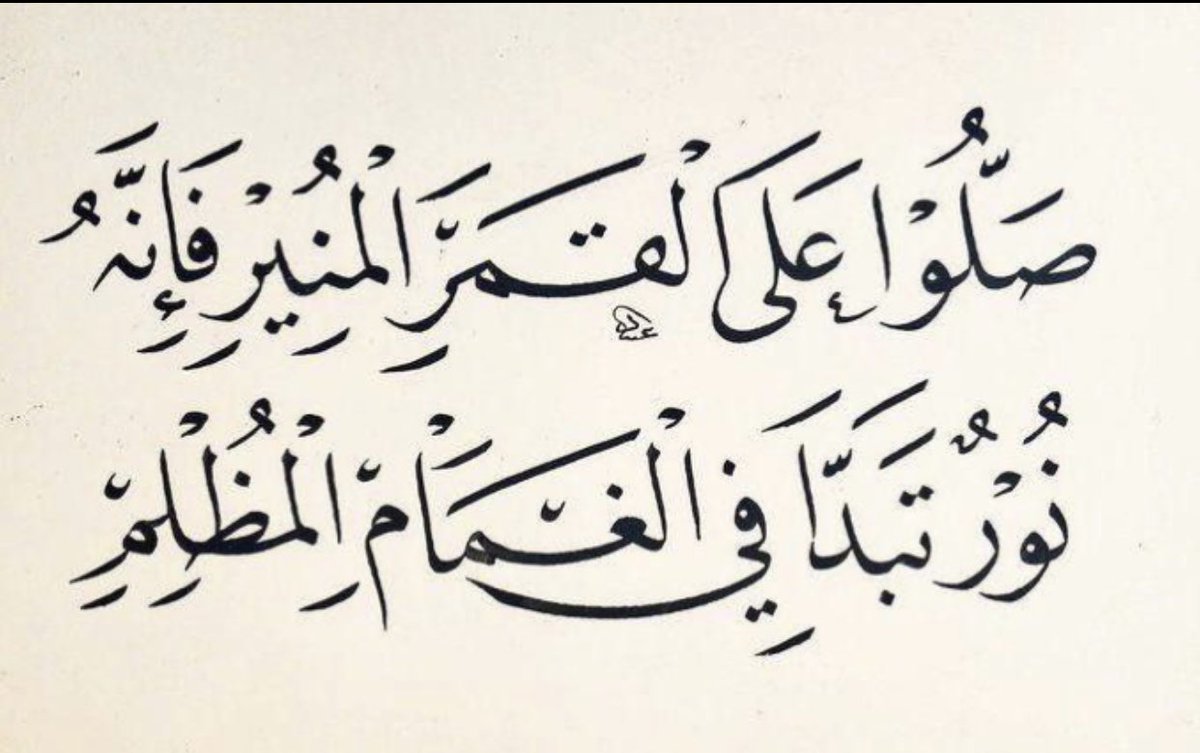 صَلُّوْا عَلَى الْقَمَرِ الْمُنِيْرِ فَإِنَّهُ
نُوْرٌ تَبَدَّا فِي الْغَمَامِ الْمُظْلِمِ